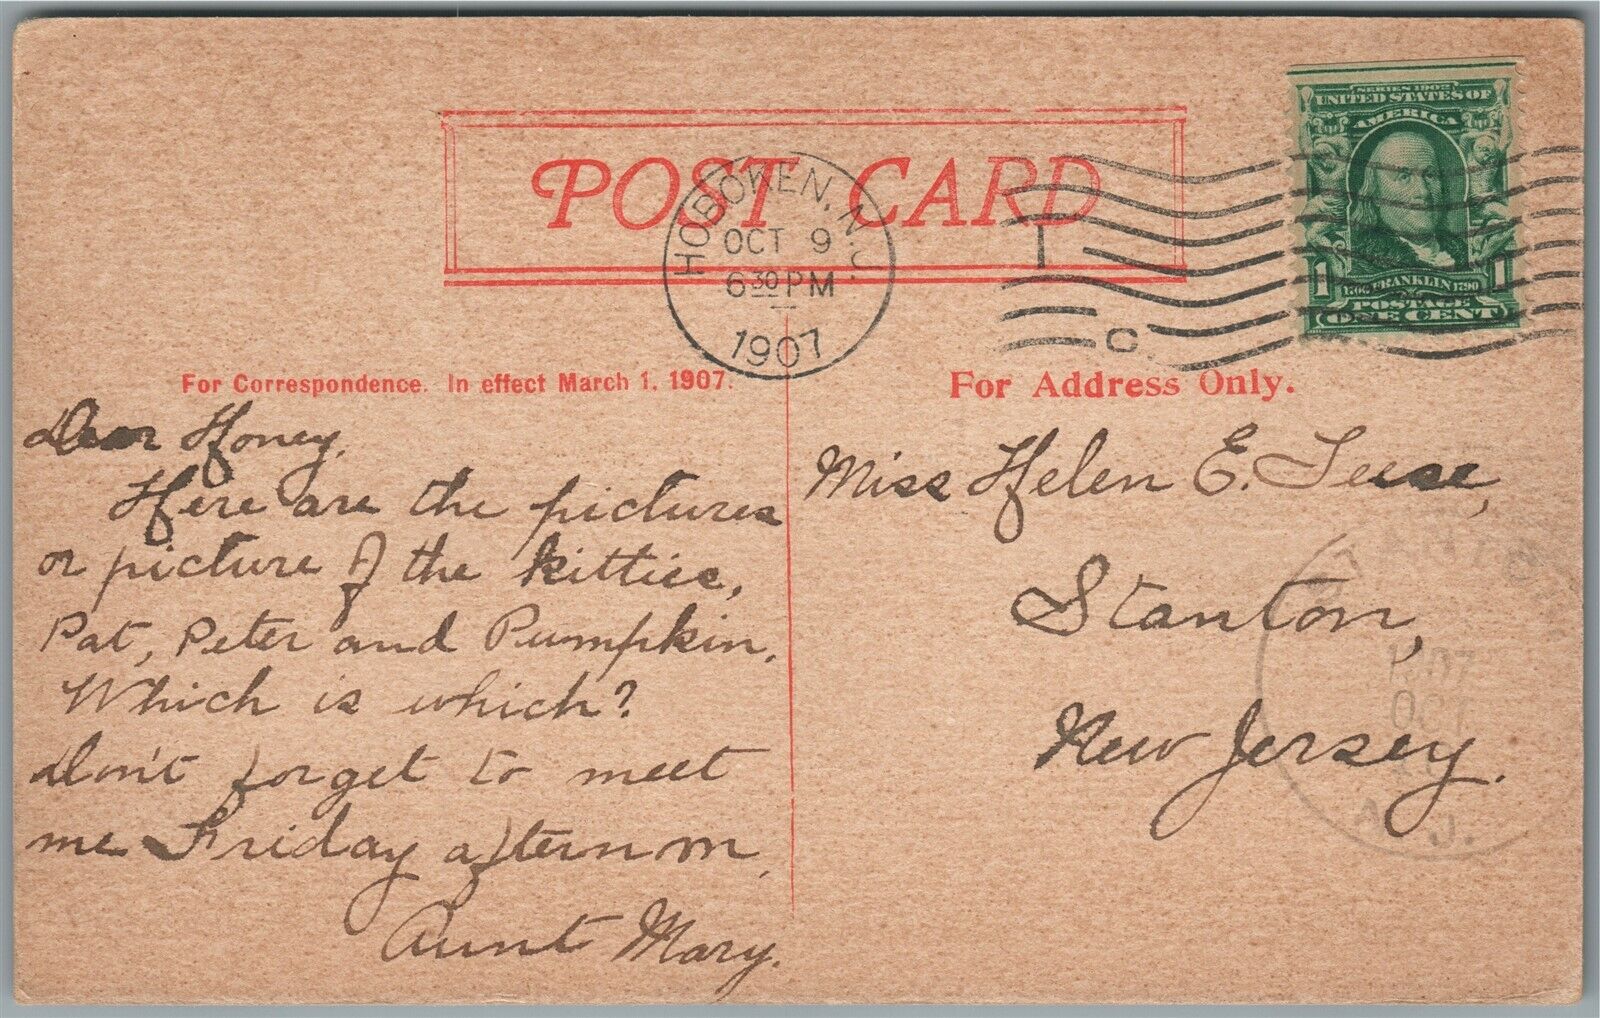 POST CARD
HOBOKEN, N.J.
OCT 9
6 30 PM
1907
I
C.
SERIES 1902
UNITED STATES OF
AMERICA
1 1
1706 FRANKLIN 1790
POSTAGE
ONE CENT
For Correspondence. In effect March 1, 1907.
Dear Honey,
Here are the pictures
or picture of the kitties,
Pat, Peter and Pumpkin.
Which is which?
Don't forget to meet
me Friday afternoon,
Aunt Mary.
For Address Only.
Miss Helen E. Teese,
Stanton,
New Jersey.
STANTO
1907
OCT
J.